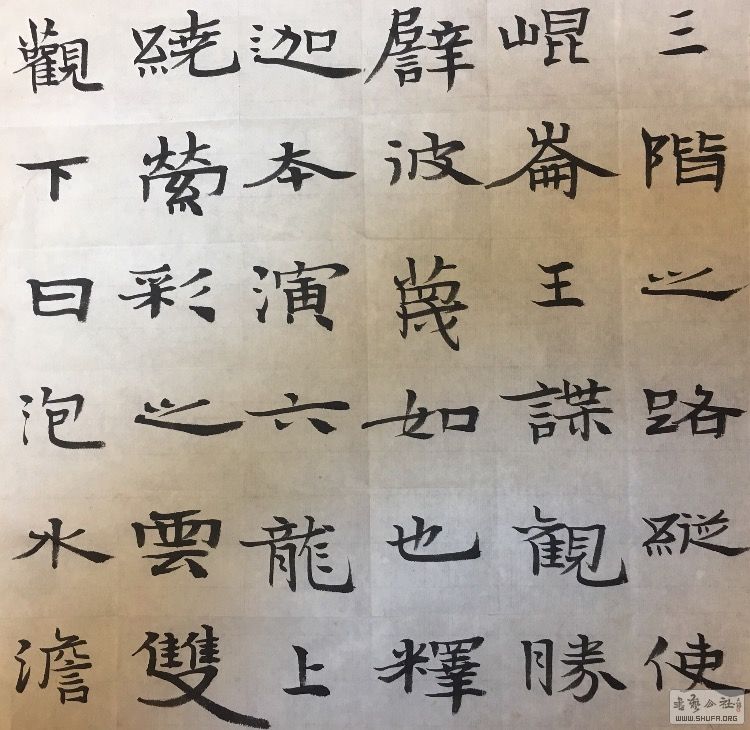 三階之路縱使
崐崙王諜觀勝
譬彼蔑如也釋
迦本演六龍上
繞縈彩之雲雙
觀下日泡水澹
书艺公社
WWW.SHUFA.ORG